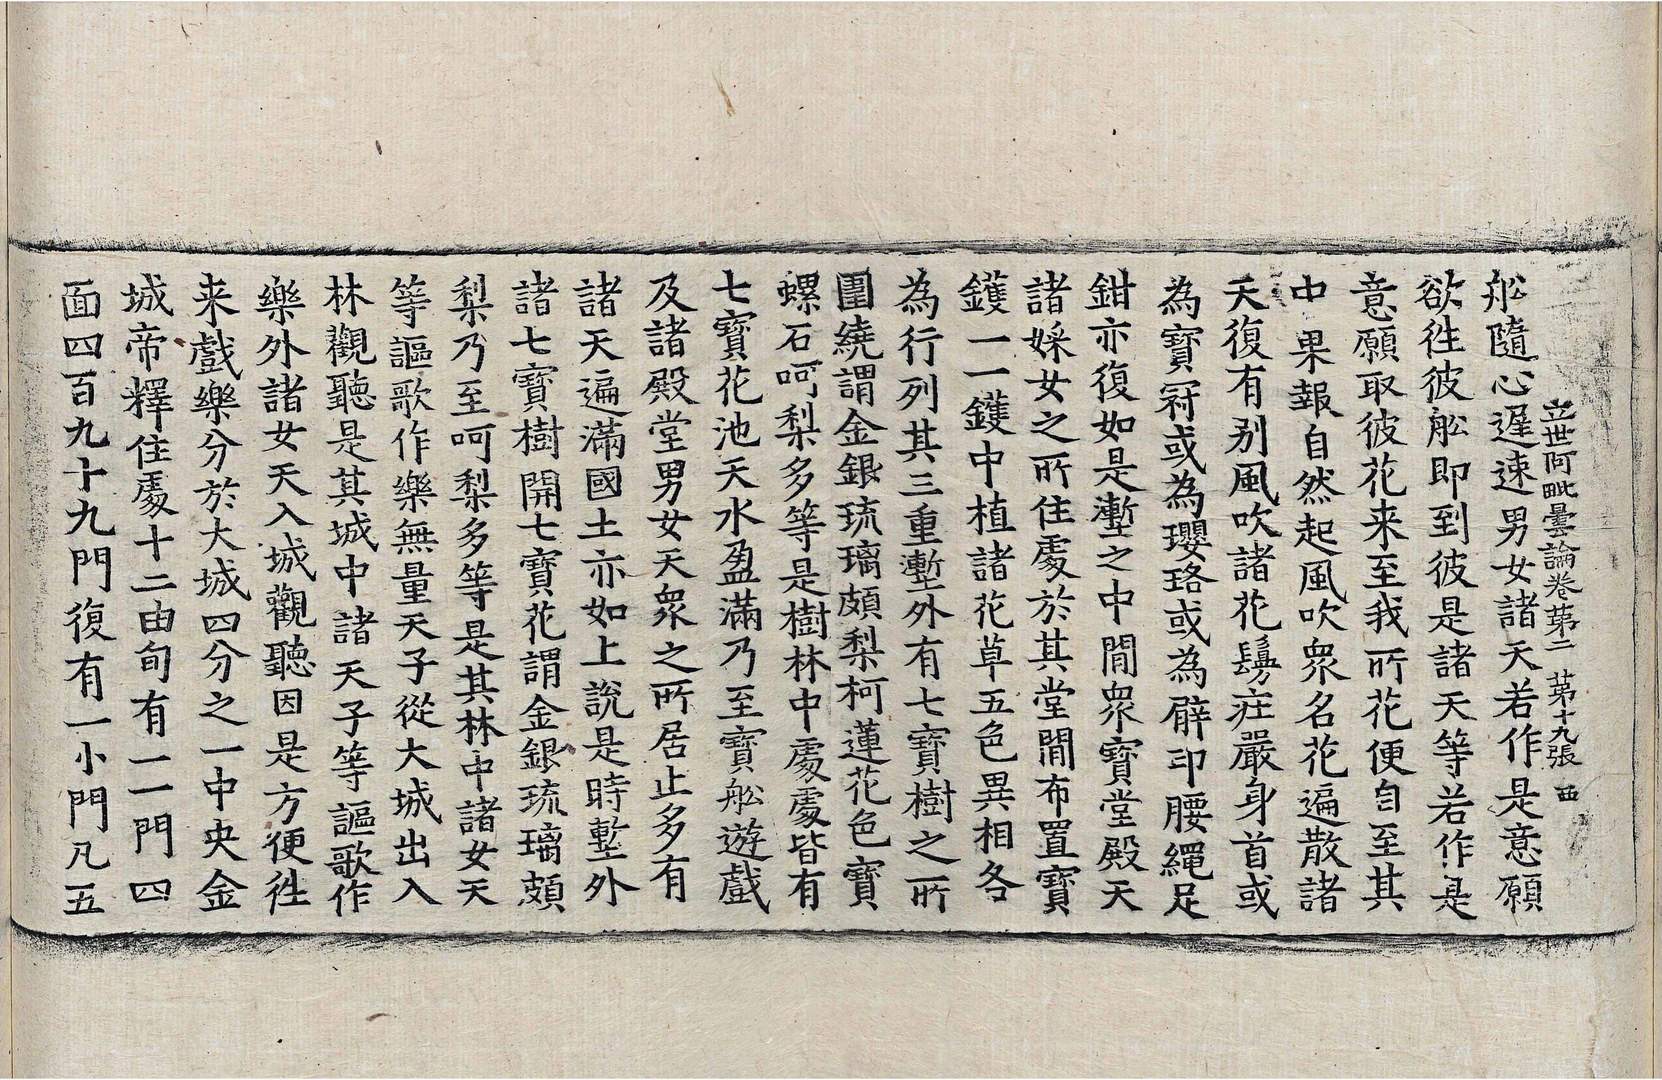 立世阿毗曇論卷苐二 苐十九張 𠀍
舩隨心遲速男女諸天若作是意願
欲徃彼舩即到彼是諸天等若作是
意願取彼花来至我所花便自至其
中果報自然起風吹衆名花遍散諸
天復有別風吹諸花鬘莊嚴身首或
為寶冠或為瓔珞或為臂印腰繩足
鉗亦復如是壍之中間衆寶堂殿天
諸婇女之所住處於其堂間布置寶
鑊一一鑊中植諸花草五色異相各
為行列其三重壍外有七寶樹之所
圍繞謂金銀琉璃頗梨柯蓮花色寶
螺石呵梨多等是樹林中處處皆有
七寶花池天水盈滿乃至寶舩遊戲
及諸殿堂男女天衆之所居止多有
諸天遍滿國土亦如上說是時壍外
諸七寶樹開七寶花謂金銀琉璃頗
梨乃至呵梨多等是其林中諸女天
等謳歌作樂無量天子從大城出入
林觀聽是其城中諸天子等謳歌作
樂外諸女天入城觀聽因是方便徃
来戲樂分於大城四分之一中央金
城帝釋住處十二由旬有一一門四
面四百九十九門復有一小門凡五